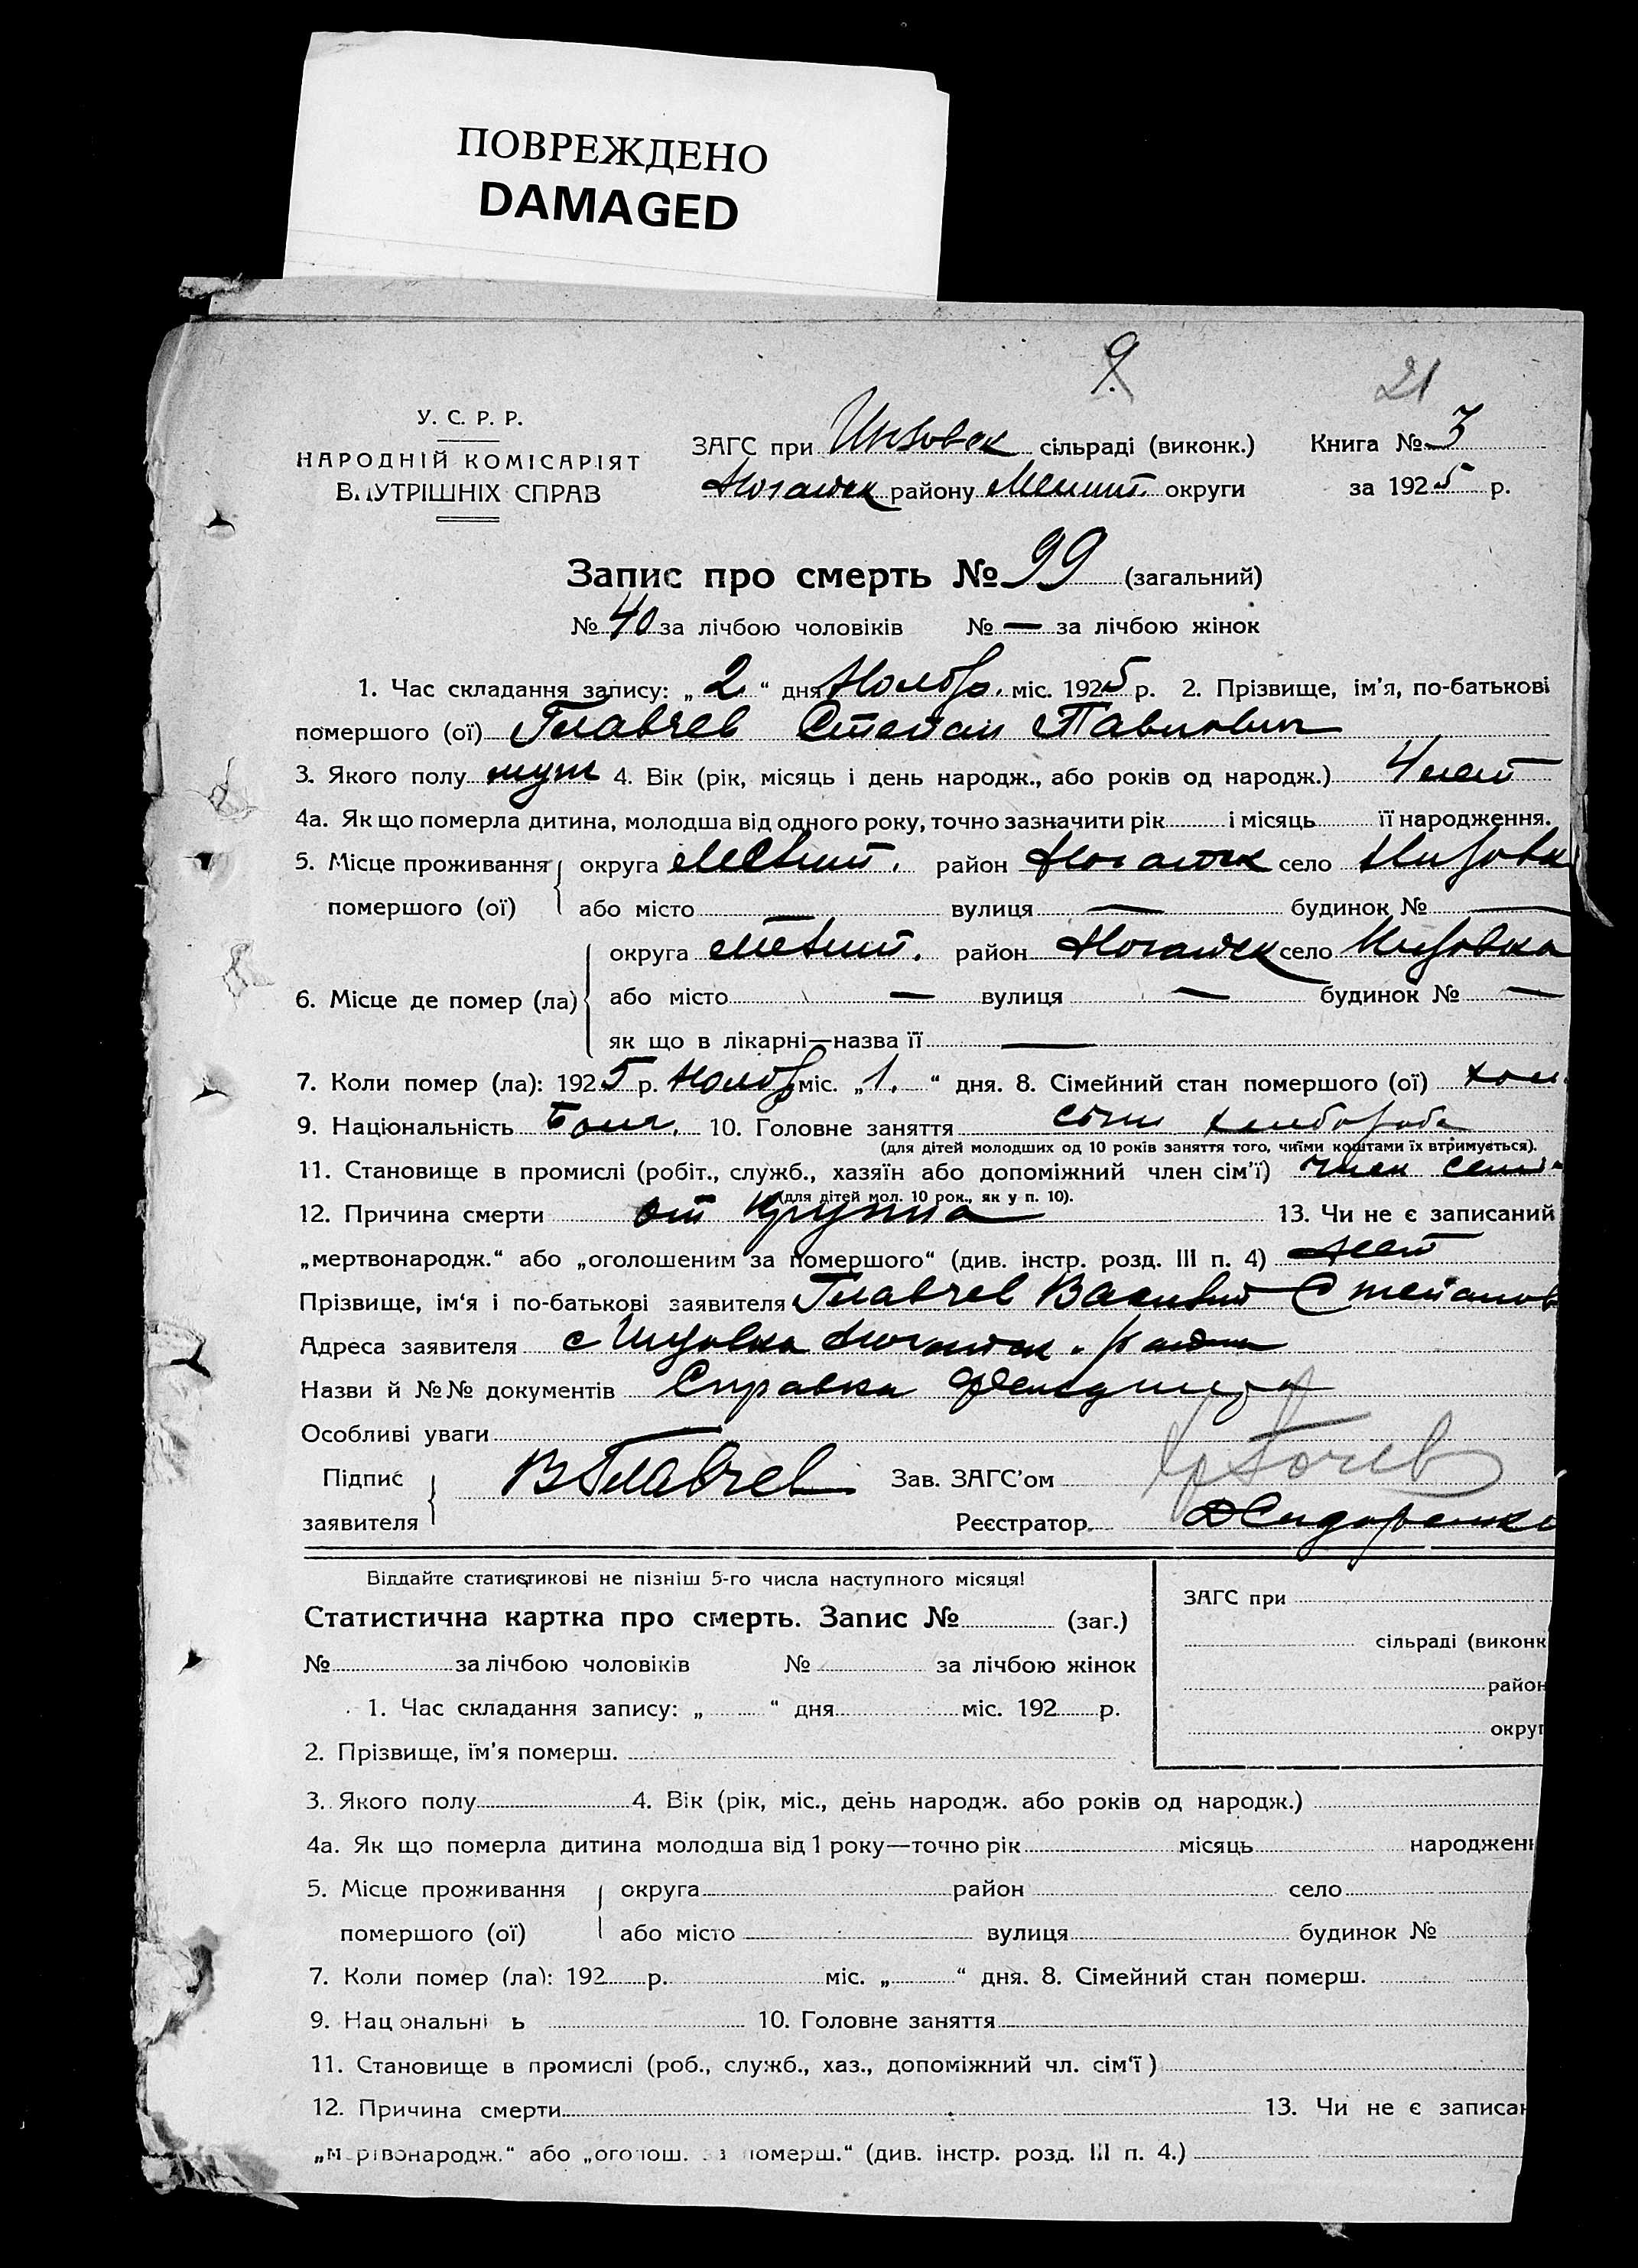 ПОВРЕЖДЕНО
DAMAGED
9. 21
У. С. Р. Р.
НАРОДНІЙ КОМІСАРІЯТ
ВНУТРІШНІХ СПРАВ
ЗАГС при Инзовск сільраді (виконк.) Книга № 3
Ногайск району Мелит. округи за 1925 р.
Запис про смерть № 99 (загальний)
№ 40 за лічбою чоловіків № — за лічбою жінок
1. Час складання запису: „2“ дняНоября міс. 1925 р. 2. Прізвище, ім'я, по-батькові
помершого (ої) Главчев Степан Павлович
3. Якого полу муж 4. Вік (рік, місяць і день народж., або років од народж.) 4 лет
4а. Як що померла дитина, молодша від одного року, точно зазначити рік і місяць її народження.
5. Місце проживання округа Мелит. район Ногайск село Инзовка
помершого (ої) або місто вулиця — будинок № —
округа Мелит. район Ногайск село Инзовка
6. Місце де помер (ла) або місто — вулиця — будинок № —
як що в лікарні—назва її —
7. Коли помер (ла): 1925 р. Нояб міс. „1.“ дня. 8. Сімейний стан помершого (ої) хол.
9. Національність Болг. 10. Головне заняття сын хлебороба
(для дітей молодших од 10 років заняття того, чиїми коштами їх втримується).
11. Становище в промислі (робіт., служб., хазяїн або допоміжний член сім'ї) член семи
(для дітей мол. 10 рок., як у п. 10).
12. Причина смерти от крупа 13. Чи не є записаний
„мертвонародж.“ або „оголошеним за помершого“ (див. інстр. розд. III п. 4) нет
Прізвище, ім'я і по-батькові заявителя Главчев Василий Степанов
Адреса заявителя с Инзовка Ногайск. района
Назви й №№ документів Справка Фельдшера
Особливі уваги
Підпис В Главчев Зав. ЗАГС'ом
заявителя Реєстратор ДСидоренко
Віддайте статистикові не пізніш 5-го числа наступного місяця!
Статистична картка про смерть. Запис № (заг.)
ЗАГС при
сільраді (виконк
№ за лічбою чоловіків № за лічбою жінок
район
1. Час складання запису: „ “ дня міс. 192 р.
округ
2. Прізвище, ім'я померш.
3. Якого полу 4. Вік (рік, міс., день народж. або років од народж.)
4а. Як що померла дитина молодша від 1 року—точно рік місяць народжен
5. Місце проживання округа район село
помершого (ої) або місто вулиця будинок №
7. Коли помер (ла): 192 р. міс. „ “ дня. 8. Сімейний стан померш.
9. Нац ональні ь 10. Головне заняття
11. Становище в промислі (роб., служб., хаз., допоміжний чл. сім'ї)
12. Причина смерти 13. Чи не є записан
„м ртвонародж.“ або „оголош. за померш.“ (див. інстр. розд. III п. 4.)